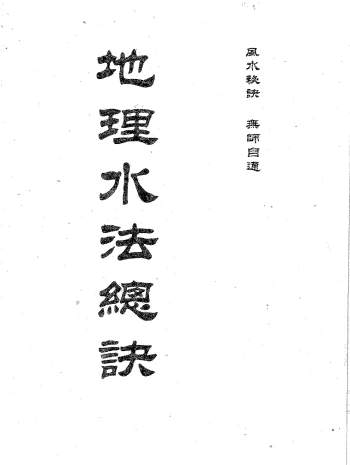 風水秘訣　無師自通
地理水法總訣